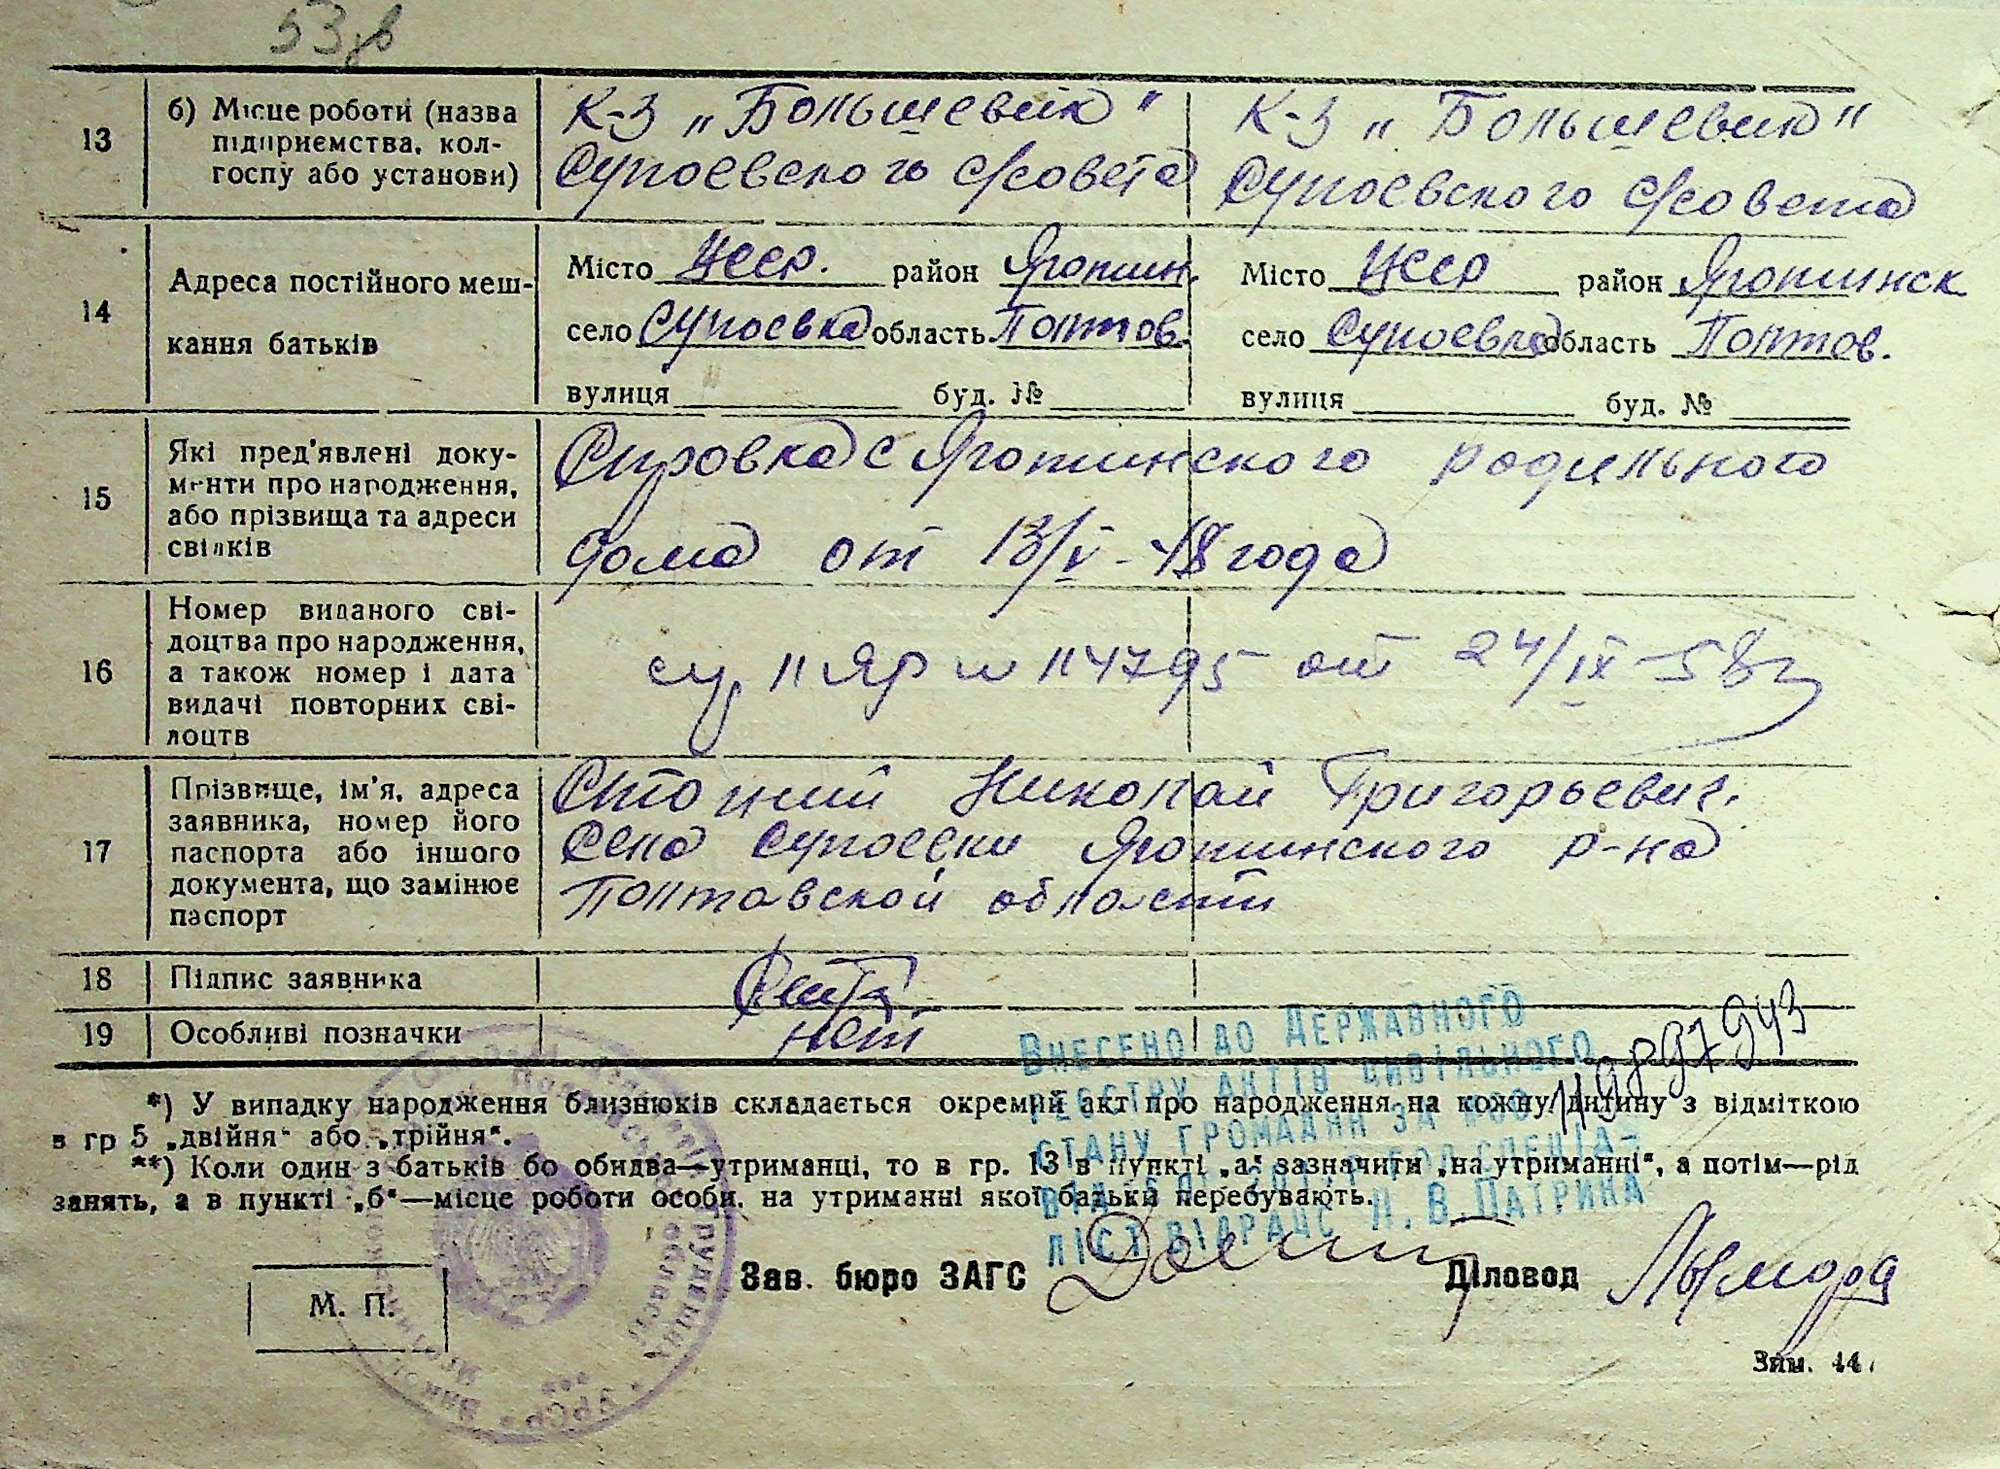 53
13
б) Місце роботи (назва
підприємства, кол-
госпу або установи)
К-з „Большевик"
Супоевского с/совета
К-з „Большевик"
Супоевского с/совета
14
Адреса постійного меш-
кання батьків
Місто УССР. район Яготин.
село Супоевка область Полтов.
вулиця " буд. №
Місто УССР район Яготинск
село Супоевка область Полтов.
вулиця буд. №
15
Які пред'явлені доку-
менти про народження,
або прізвища та адреси
свідків
Спровка с Яготинского родильного
дома от 13/V-48 года
16
Номер виданого сві-
доцтва про народження,
а також номер і дата
видачі повторних сві-
доцтв
ІІ ЯР от 24/IX-58г
17
Прізвище, ім'я, адреса
заявника, номер його
паспорта або іншого
документа, що замінює
паспорт
Николай Григорьевич.
Села Супоевки Яготинского р-на
Полтавской области
18
Підпис заявника
19
Особливі позначки
нет
Внесено до Державного
реєстру актів цивільного
стану громадян за №00
119897943
ліст відрацс Л. В. Патрина
*) У випадку народження близнюків складається окремий акт про народження на кожну дитину з відміткою
в гр 5 „двійня" або „трійня".
**) Коли один з батьків бо обидва—утриманці, то в гр. 13 в пункті „а" зазначити „на утриманні", а потім—рід
занять, а в пункті „б"—місце роботи особи, на утриманні якої батьки перебувають.
М. П.
Зав. бюро ЗАГС
Діловод
Зам. 44